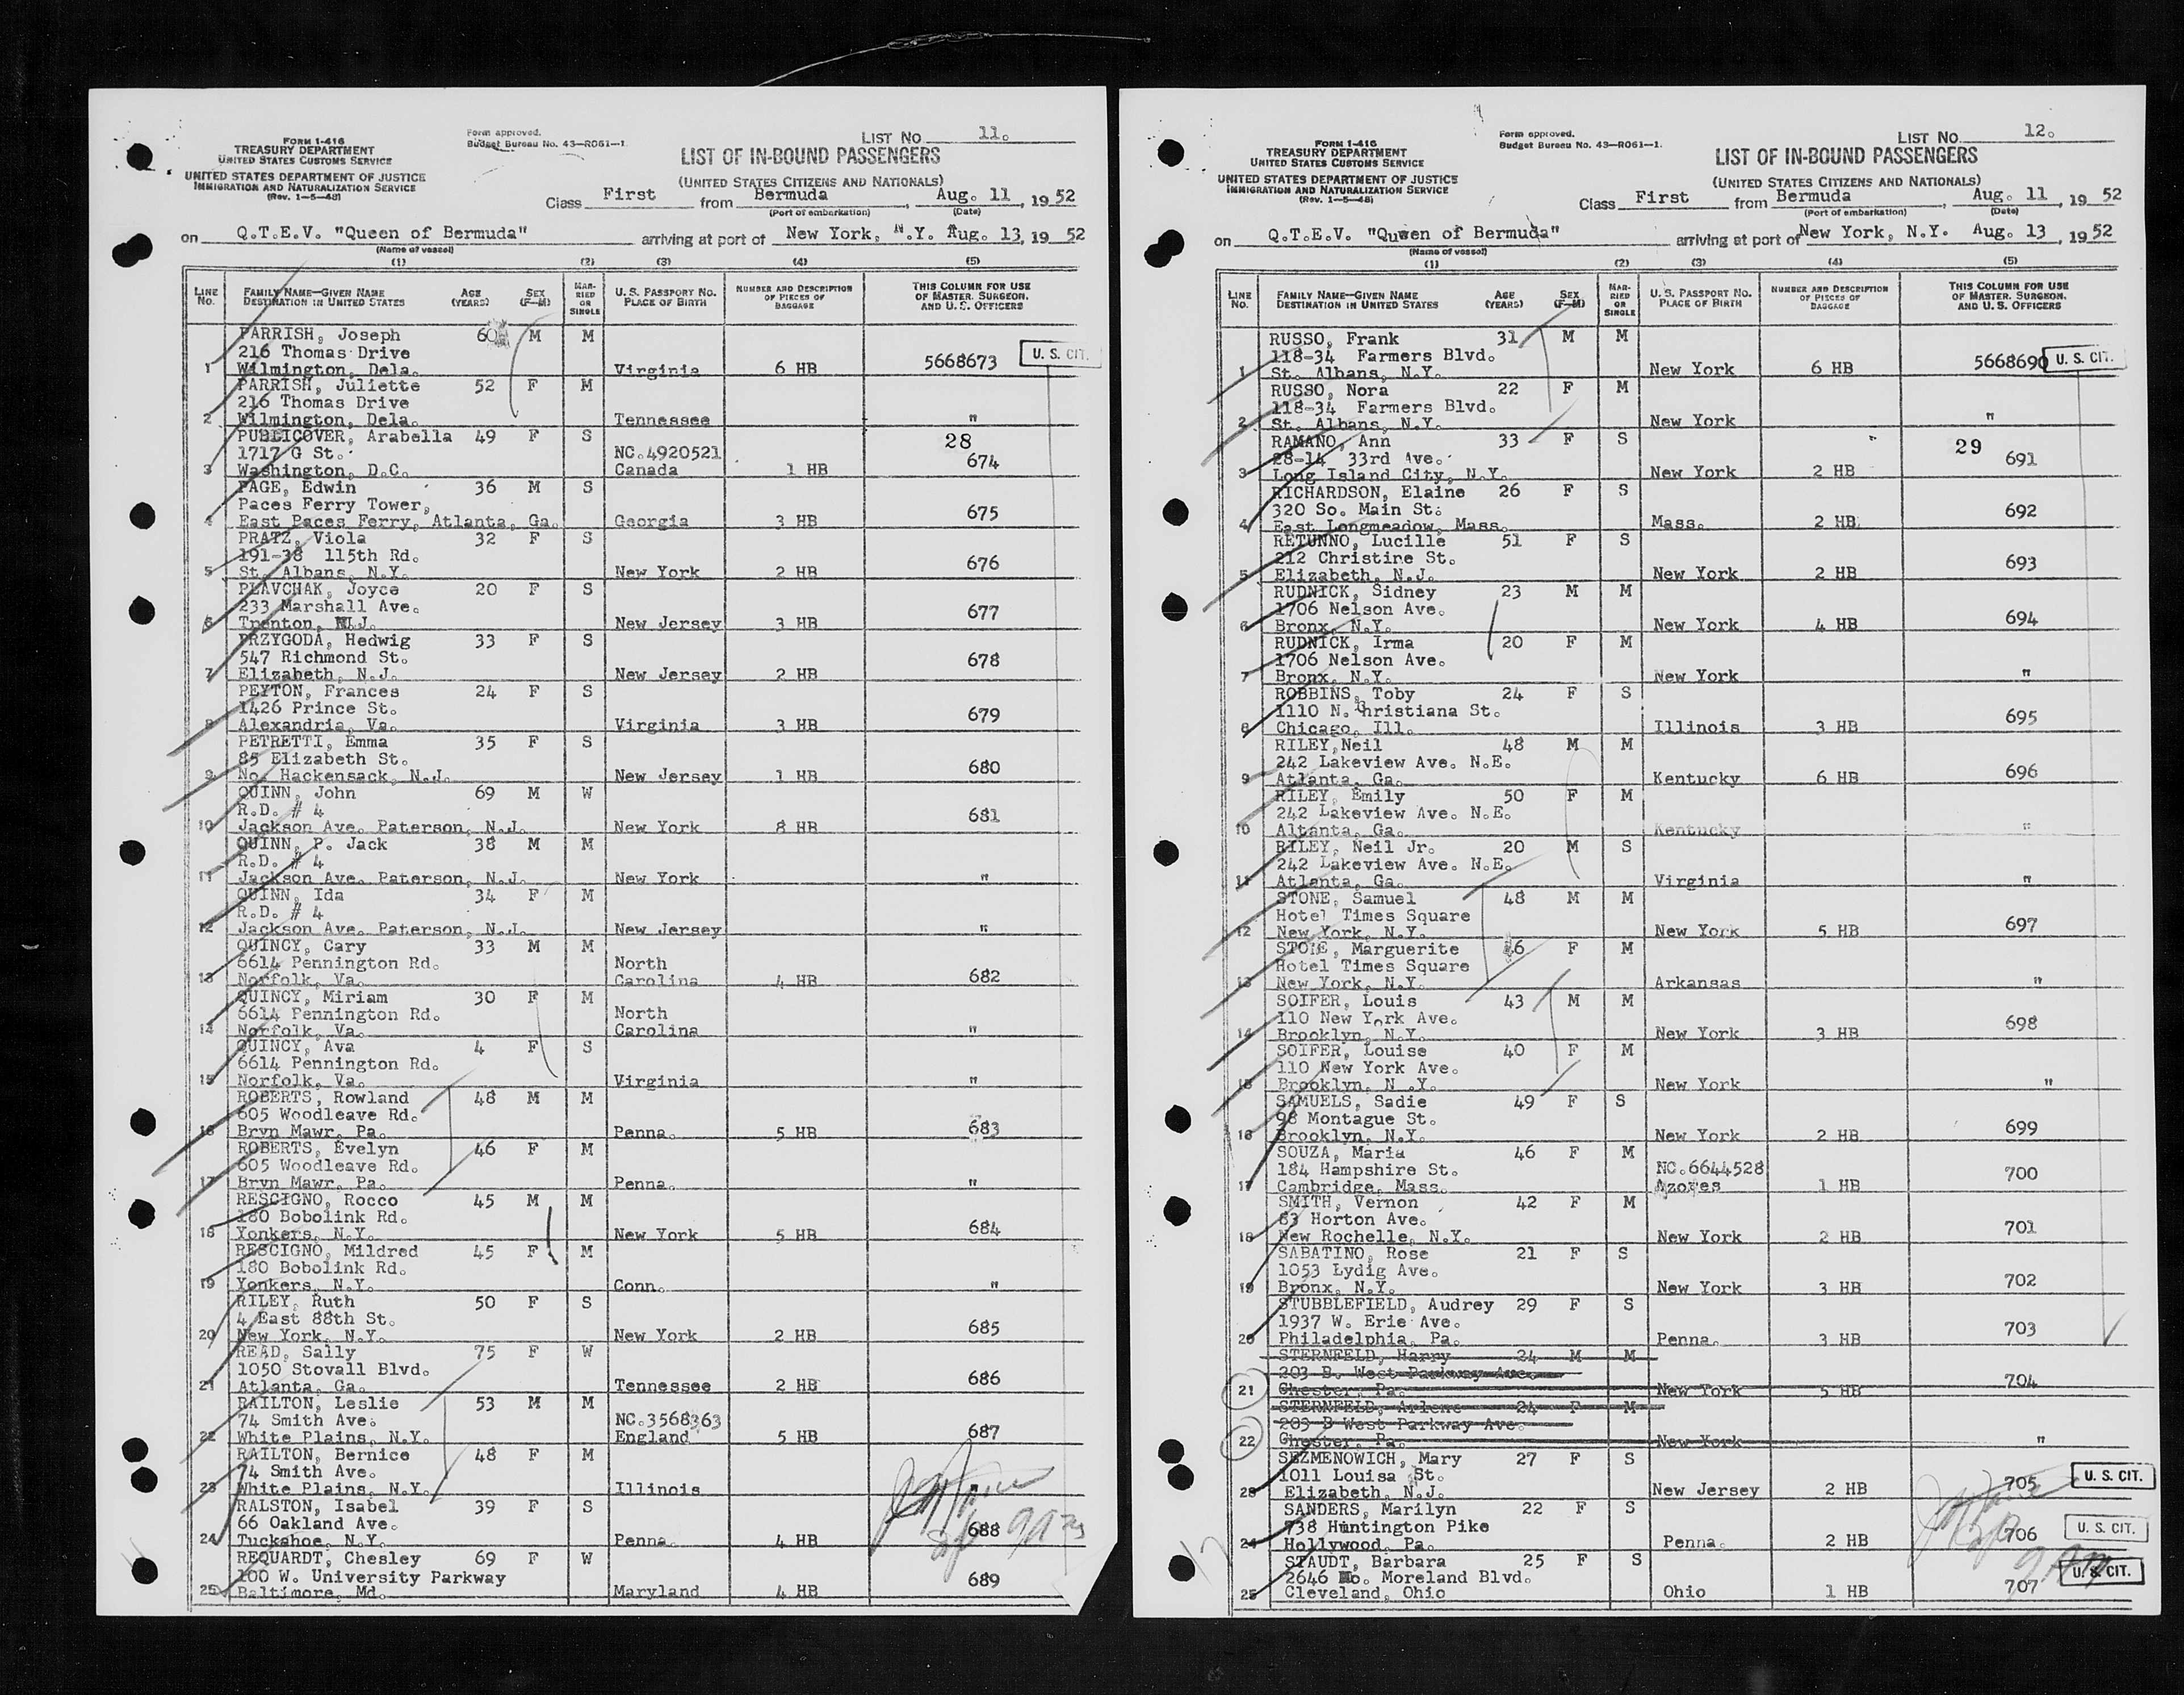 FORM I-416
TREASURY DEPARTMENT
UNITED STATES CUSTOMS SERVICE
UNITED STATES DEPARTMENT OF JUSTICE
IMMIGRATION AND NATURALIZATION SERVICE
(Rev. 1-5-48)
Form approved.
Budget Bureau No. 43-R061-1.
LIST NO. 11.
LIST OF IN-BOUND PASSENGERS
(UNITED STATES CITIZENS AND NATIONALS)
Class First from Bermuda, Aug. 11, 1952
(Port of embarkation) (Date)
on Q.T.E.V. "Queen of Bermuda" arriving at port of New York, N.Y. Aug. 13, 1952
(Name of vessel)
(1) (2) (3) (4) (5)
LINE NO. FAMILY NAME—GIVEN NAME DESTINATION IN UNITED STATES AGE (YEARS) SEX (F-M) MARRIED OR SINGLE U.S. PASSPORT NO. PLACE OF BIRTH NUMBER AND DESCRIPTION OF PIECES OF BAGGAGE THIS COLUMN FOR USE OF MASTER, SURGEON, AND U.S. OFFICERS
PARRISH, Joseph 60 M M
216 Thomas Drive
1 Wilmington, Dela. Virginia 6 HB 5668673 U. S. CIT.
PARRISH, Juliette 52 F M
216 Thomas Drive
2 Wilmington, Dela. Tennessee "
PUBLICOVER, Arabella 49 F S 28
1717 G St. NC.4920521
3 Washington, D.C. Canada 1 HB 674
PAGE, Edwin 36 M S
Paces Ferry Tower,
4 East Paces Ferry, Atlanta, Ga. Georgia 3 HB 675
PRATZ, Viola 32 F S
191-38 115th Rd.
5 St. Albans, N.Y. New York 2 HB 676
PLAVCHAK, Joyce 20 F S
233 Marshall Ave.
6 Trenton, N.J. New Jersey 3 HB 677
PRZYGODA, Hedwig 33 F S
547 Richmond St.
7 Elizabeth, N.J. New Jersey 2 HB 678
PEYTON, Frances 24 F S
1426 Prince St.
8 Alexandria, Va. Virginia 3 HB 679
PETRETTI, Emma 35 F S
85 Elizabeth St.
9 No. Hackensack, N.J. New Jersey 1 HB 680
QUINN, John 69 M W
R.D. # 4
10 Jackson Ave. Paterson, N.J. New York 8 HB 681
QUINN, P. Jack 38 M M
R.D. # 4
11 Jackson Ave. Paterson, N.J. New York "
QUINN, Ida 34 F M
R.D. # 4
12 Jackson Ave. Paterson, N.J. New Jersey "
QUINCY, Cary 33 M M
6614 Pennington Rd. North
13 Norfolk, Va. Carolina 4 HB 682
QUINCY, Miriam 30 F M
6614 Pennington Rd. North
14 Norfolk, Va. Carolina "
QUINCY, Ava 4 F S
6614 Pennington Rd.
15 Norfolk, Va. Virginia "
ROBERTS, Rowland 48 M M
605 Woodleave Rd.
16 Bryn Mawr, Pa. Penna. 5 HB 683
ROBERTS, Evelyn 46 F M
605 Woodleave Rd.
17 Bryn Mawr, Pa. Penna. "
RESCIGNO, Rocco 45 M M
180 Bobolink Rd.
18 Yonkers, N.Y. New York 5 HB 684
RESCIGNO, Mildred 45 F M
180 Bobolink Rd.
19 Yonkers, N.Y. Conn. "
RILEY, Ruth 50 F S
4 East 88th St.
20 New York, N.Y. New York 2 HB 685
READ, Sally 75 F W
1050 Stovall Blvd.
21 Atlanta, Ga. Tennessee 2 HB 686
RAILTON, Leslie 53 M M
74 Smith Ave. NC.3568363
22 White Plains, N.Y. England 5 HB 687
RAILTON, Bernice 48 F M
74 Smith Ave.
23 White Plains, N.Y. Illinois "
RALSTON, Isabel 39 F S
66 Oakland Ave.
24 Tuckahoe, N.Y. Penna. 4 HB 688
REQUARDT, Chesley 69 F W
100 W. University Parkway
25 Baltimore, Md. Maryland 4 HB 689
FORM I-416
TREASURY DEPARTMENT
UNITED STATES CUSTOMS SERVICE
UNITED STATES DEPARTMENT OF JUSTICE
IMMIGRATION AND NATURALIZATION SERVICE
(Rev. 1-5-48)
Form approved.
Budget Bureau No. 43-R061-1.
LIST NO. 12.
LIST OF IN-BOUND PASSENGERS
(UNITED STATES CITIZENS AND NATIONALS)
Class First from Bermuda, Aug. 11, 1952
(Port of embarkation) (Date)
on Q.T.E.V. "Queen of Bermuda" arriving at port of New York, N.Y. Aug. 13, 1952
(Name of vessel)
(1) (2) (3) (4) (5)
LINE NO. FAMILY NAME—GIVEN NAME DESTINATION IN UNITED STATES AGE (YEARS) SEX (F-M) MARRIED OR SINGLE U.S. PASSPORT NO. PLACE OF BIRTH NUMBER AND DESCRIPTION OF PIECES OF BAGGAGE THIS COLUMN FOR USE OF MASTER, SURGEON, AND U.S. OFFICERS
RUSSO, Frank 31 M M
118-34 Farmers Blvd.
1 St. Albans, N.Y. New York 6 HB 5668690 U. S. CIT.
RUSSO, Nora 22 F M
118-34 Farmers Blvd.
2 St. Albans, N.Y. New York "
RAMANO, Ann 33 F S 29
28-14 33rd Ave.
3 Long Island City, N.Y. New York 2 HB 691
RICHARDSON, Elaine 26 F S
320 So. Main St.
4 East Longmeadow, Mass. Mass. 2 HB 692
RETUNNO, Lucille 51 F S
212 Christine St.
5 Elizabeth, N.J. New York 2 HB 693
RUDNICK, Sidney 23 M M
1706 Nelson Ave.
6 Bronx, N.Y. New York 4 HB 694
RUDNICK, Irma 20 F M
1706 Nelson Ave.
7 Bronx, N.Y. New York "
ROBBINS, Toby 24 F S
1110 N. Christiana St.
8 Chicago, Ill. Illinois 3 HB 695
RILEY,Neil 48 M M
242 Lakeview Ave. N.E.
9 Atlanta, Ga. Kentucky 6 HB 696
RILEY, Emily 50 F M
242 Lakeview Ave. N.E.
10 Altanta, Ga. Kentucky "
RILEY, Neil Jr. 20 M S
242 Lakeview Ave. N.E.
11 Atlanta, Ga. Virginia "
STONE, Samuel 48 M M
Hotel Times Square
12 New York, N.Y. New York 5 HB 697
STONE, Marguerite 46 F M
Hotel Times Square
13 New York, N.Y. Arkansas "
SOIFER, Louis 43 M M
110 New York Ave.
14 Brooklyn, N.Y. New York 3 HB 698
SOIFER, Louise 40 F M
110 New York Ave.
15 Brooklyn, N.Y. New York "
SAMUELS, Sadie 49 F S
98 Montague St.
16 Brooklyn, N.Y. New York 2 HB 699
SOUZA, Maria 46 F M
184 Hampshire St. NC.6644528
17 Cambridge, Mass. Azores 1 HB 700
SMITH, Vernon 42 F M
83 Horton Ave.
18 New Rochelle, N.Y. New York 2 HB 701
SABATINO, Rose 21 F S
1053 Lydig Ave.
19 Bronx, N.Y. New York 3 HB 702
STUBBLEFIELD, Audrey 29 F S
1937 W. Erie Ave.
20 Philadelphia, Pa. Penna. 3 HB 703
STERNFELD, Harry 24 M M
203 B. West Parkway Ave.
21 Chester, Pa. New York 5 HB 704
STERNFELD, Arlene 24 F M
203 B West Parkway Ave.
22 Chester, Pa. New York "
SEZMENOWICH, Mary 27 F S
1011 Louisa St.
23 Elizabeth, N.J. New Jersey 2 HB 705 U. S. CIT.
SANDERS, Marilyn 22 F S
738 Huntington Pike
24 Hollywood, Pa. Penna. 2 HB 706 U. S. CIT.
STAUDT, Barbara 25 F S
2646 No. Moreland Blvd.
25 Cleveland, Ohio Ohio 1 HB 707 U. S. CIT.